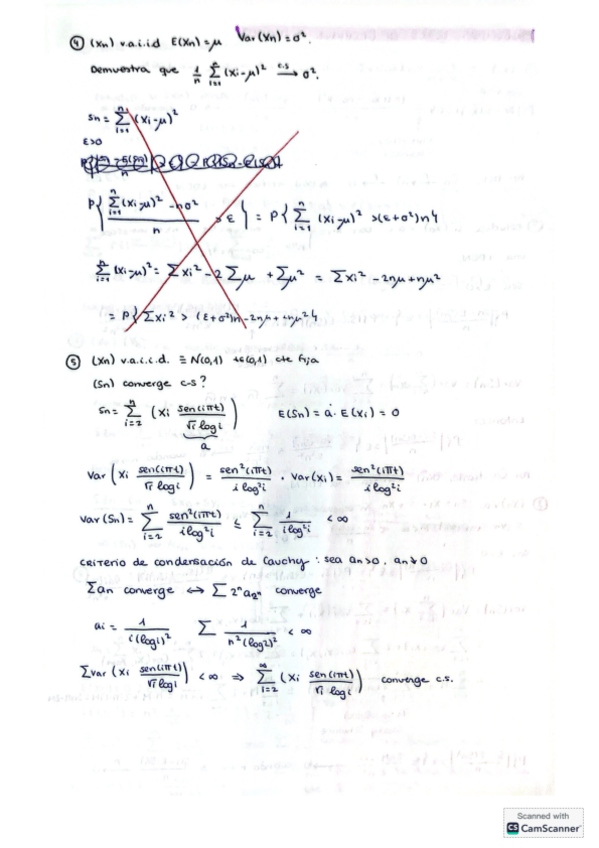 ④ (Xn) v.a.i.i.d E(Xn)=μ Var(Xn)=σ².
Demuestra que 1/n Σ_{i=1}^{n} (Xi-μ)² →c.s σ².
Sn = Σ_{i=1}^{n} (Xi-μ)²
ε>0
P{ (Σ_{i=1}^{n} (Xi-μ)² - nσ²)/n > ε } = P{ Σ_{i=1}^{n} (Xi-μ)² > (ε+σ²)n }
Σ_{i=1}^{n} (Xi-μ)² = ΣXi² - 2Σμ + Σμ² = ΣXi² - 2nμ + nμ²
= P{ ΣXi² > (ε+σ²)n - 2nμ + nμ² }
⑤ (Xn) v.a.i.i.d. ≡ N(0,1) t∈(0,1) cte fija
(Sn) converge c.s?
Sn = Σ_{i=2}^{n} (Xi sen(iπt)/(√i log i)) E(Sn) = a · E(Xi) = 0
a
Var(Xi sen(iπt)/(√i log i)) = sen²(iπt)/(i log²i) · Var(Xi) = sen²(iπt)/(i log²i)
Var(Sn) = Σ_{i=2}^{n} sen²(iπt)/(i log²i) ≤ Σ_{i=2}^{n} 1/(i log²i) < ∞
criterio de condensación de Cauchy : sea an>0, an↓0
Σan converge ⟷ Σ 2ⁿa_{2ⁿ} converge
ai = 1/(i(log i)²) Σ 1/(n²(log2)²) < ∞
Σvar(Xi sen(iπt)/(√i log i)) < ∞ ⇒ Σ_{i=2}^{∞} (Xi sen(iπt)/(√i log i)) converge c.s.
Scanned with
CS CamScanner